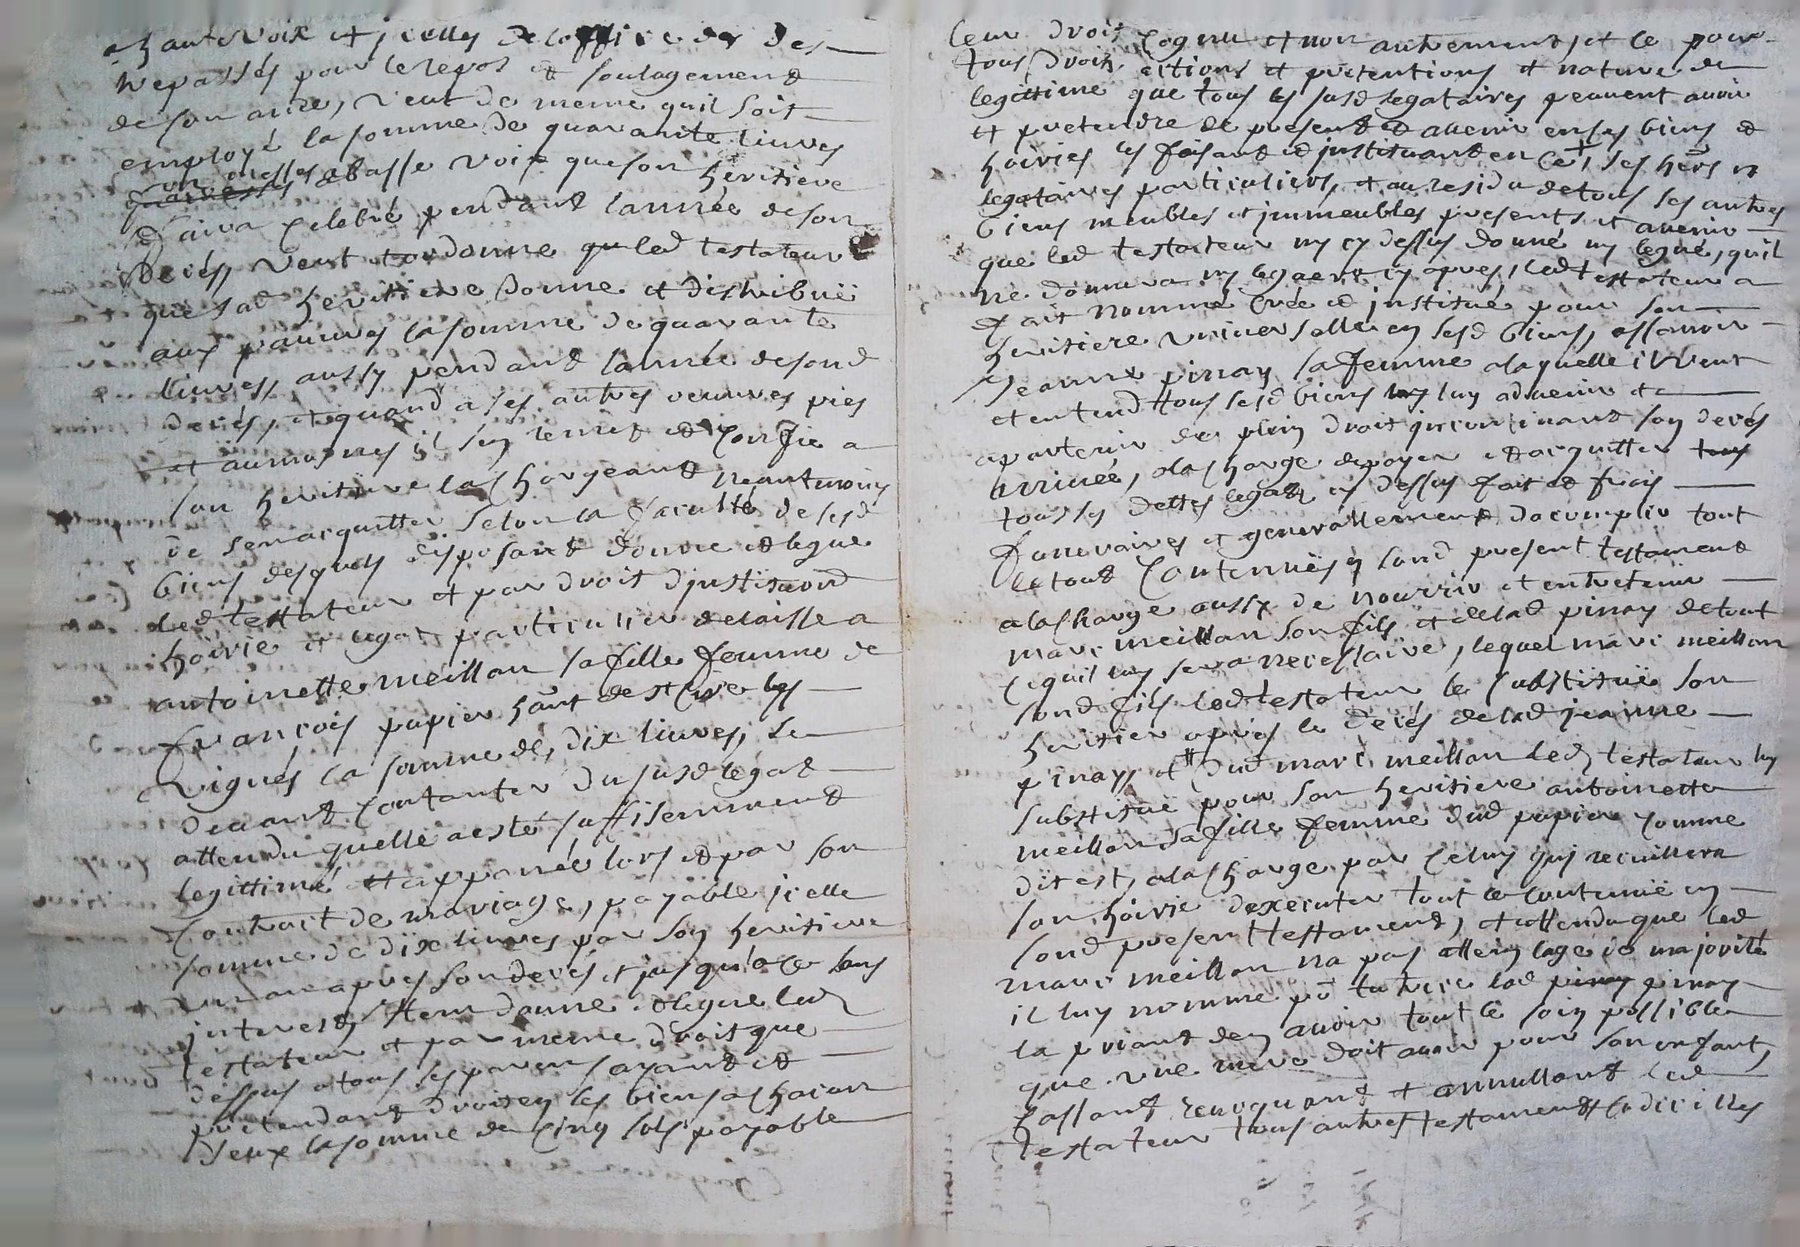 a hautevoix et jcelles de loffice des des
trepassés pour le repos et soulagement
de son ame, veut de meme quil soit
employé la somme de quarante livres
en messes abasse voix que son héritiere
faira celebré pendant lannée de son
decés, veut et ordonne que led testateur
que sad heritiere donne et distribuë
aux pauvres la somme de quarante
livres, aussy pendant lannée de sond
decés, et quand a ses autres oeuvres pies
et aumosnes il sen remet et confie a
son heritiere la chargeant neantmoins
de senacquitter selon la faculté de sesd
biens desquels disposant donne et legue
led testateur et par droit djnstitution
hoirie et legat particulier delaisse a
antoinette meillan sa fille femme de
françois papier hant de st
vignes la somme de dix livres, se
devant contanter du susd legat
attendu quelle a esté suffisemment
legittimé et appanée lors et par son
contrait de mariage, payable jcelle
somme de dix livres par son heritiere
un an apres son decés et jusqua ce sans
jnterest, Item donne et legue led
testateur et par meme droit que
dessus a tous ses parens ayant et
pretendant droit en ses biens a chacun
deux la somme de cinq sols payable
leur droit cognu et non autrement, et ce pour
tous droits actions et pretentions et nature de
legittime que tous les susd legataires peuvent avoir
et pretendre de present et avenir en ses biens et
hoiries les faisant et jnstituant en ce ses hers et
legataires particuliers, et au residu de tous ses autres
biens meubles et jmmeubles presents et avenir
que led testateur ny cy dessus donné ny legué, quil
ne donnera ny leguera cy apres, led testateur a
fait nommé créé et jnstitué pour son
heritiere universelle en sesd biens, assavoir
Jeanne pinay sa femme a laquelle il veut
et entend tous sesd biens luy advenir et
apartenir de plein droit jncontinant son decés
arrivée, a la charge de payer et acquitter
tous ses dettes legats cy dessus fait et frais
funeraires et generallement dacomplir tout
le tout contenuë en sond present testament
a la charge aussy de nourrir et entretenir
marc meillan son fils et de lad pinay de tout
ce quil luy sera necessaire, lequel marc meillan
sond fils led testateur le substituë son
heritier apres le decés de lad jeanne
pinay, et dud marc meillan led testateur luy
substituë pour son heritiere antoinette
meillan sa fille femme dud papier comme
dit est, a la charge par celuy qui recuillera
son hoirie dexecuter tout le contenuë en
sond present testament, et attendu que led
marc meillan na pas attein lage de majorité
il luy nomme po tutrice lad pinay
la priant den avoir tout le soin possible
que une mere doit avoir pour son enfant,
cassant revoquant et annullant led
testateur tous autres testament codicilles